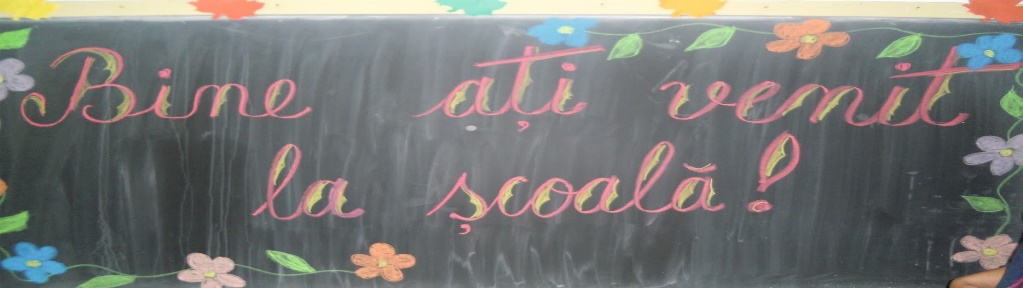 Bine ați venit
la școală!